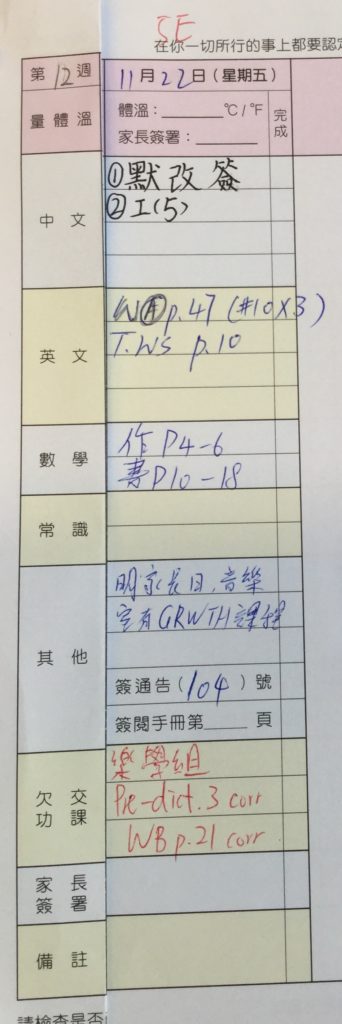 5E
在你一切所行的事上都要認定
第12週 11月22日(星期五)
量體溫 體溫：______°C/°F 完成
家長簽署：______
中文 ①默改簽
②工(5)
英文 WA p.47 (#10X3)
T.WS p.10
數學 作P4-6
書P10-18
常識
其他 明家長日，音樂
室有GRWTH課程
簽通告(104)號
簽閱手冊第____頁
欠交功課 樂學組
Pre-dict.3 corr
WB p.21 corr
家長簽署
備註
請檢查是否